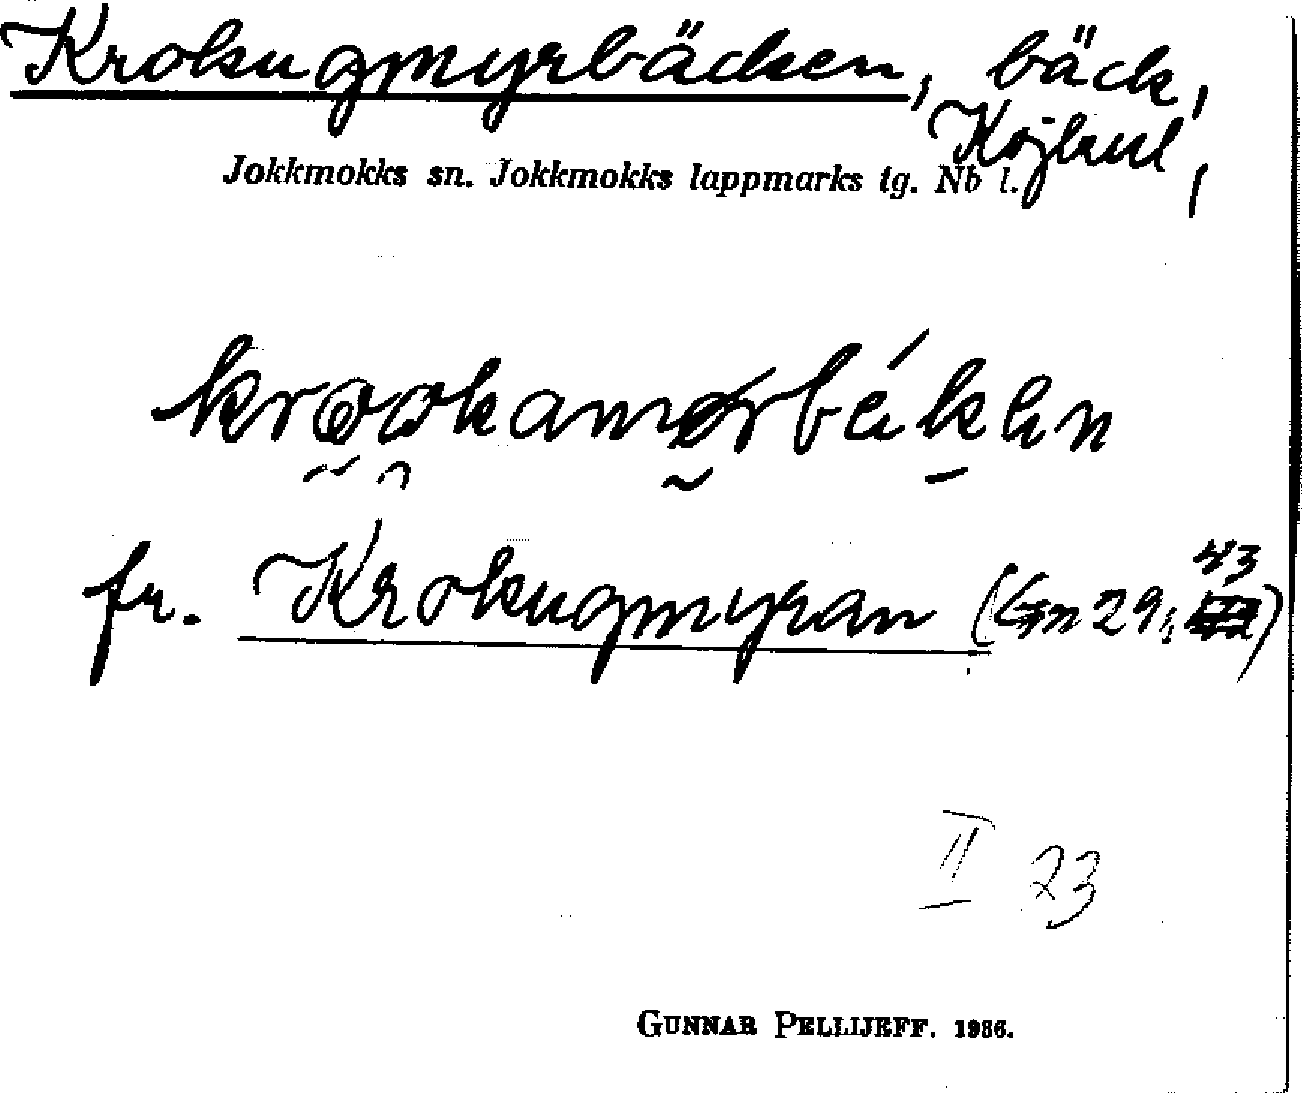 Krokugmyrbäcken, bäck,
Kåjlaul,
Jokkmokks sn. Jokkmokks lappmarks tg. Nb l.
fr. Krokugmyran (Gn 29, 43)
II 23
GUNNAR PELLIJEFF. 1986.